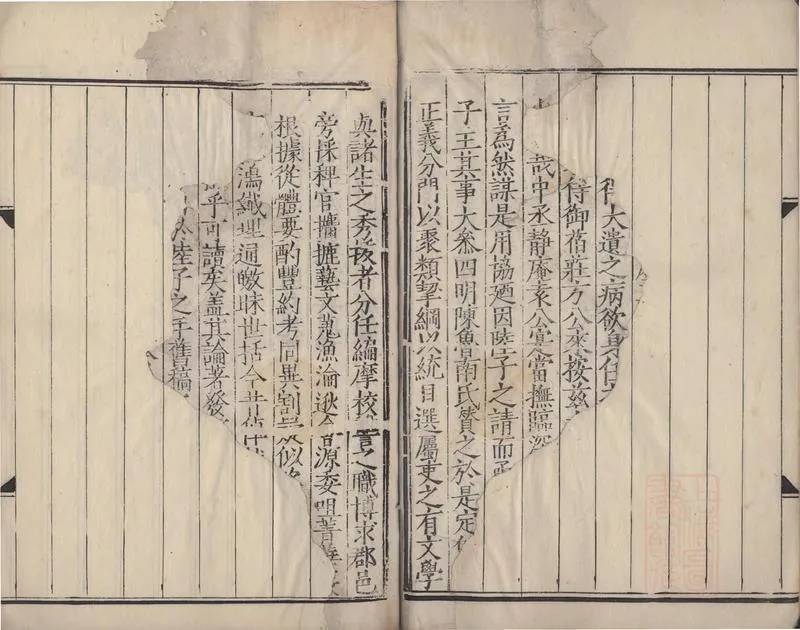 大遺之病欲身任
侍御葙莊方公來按茲
哉中丞靜庵袁公寔當撫臨
言為然謀是用協廼因陸子之請而
子王其事大叅四明陳魚南氏贊之於是定
正義分門以聚類挈綱以統目選屬吏之有文學
與諸生之秀拔者分任編摩校 之職博求郡邑
旁採稗官攟摭藝文蒐漁淪逖 源委咀菁
根據從體要酌豐約考同異割 似
鴻纖理通皦昧世括今昔
乎可讀矣盖其論著發
陸子之手舊稿